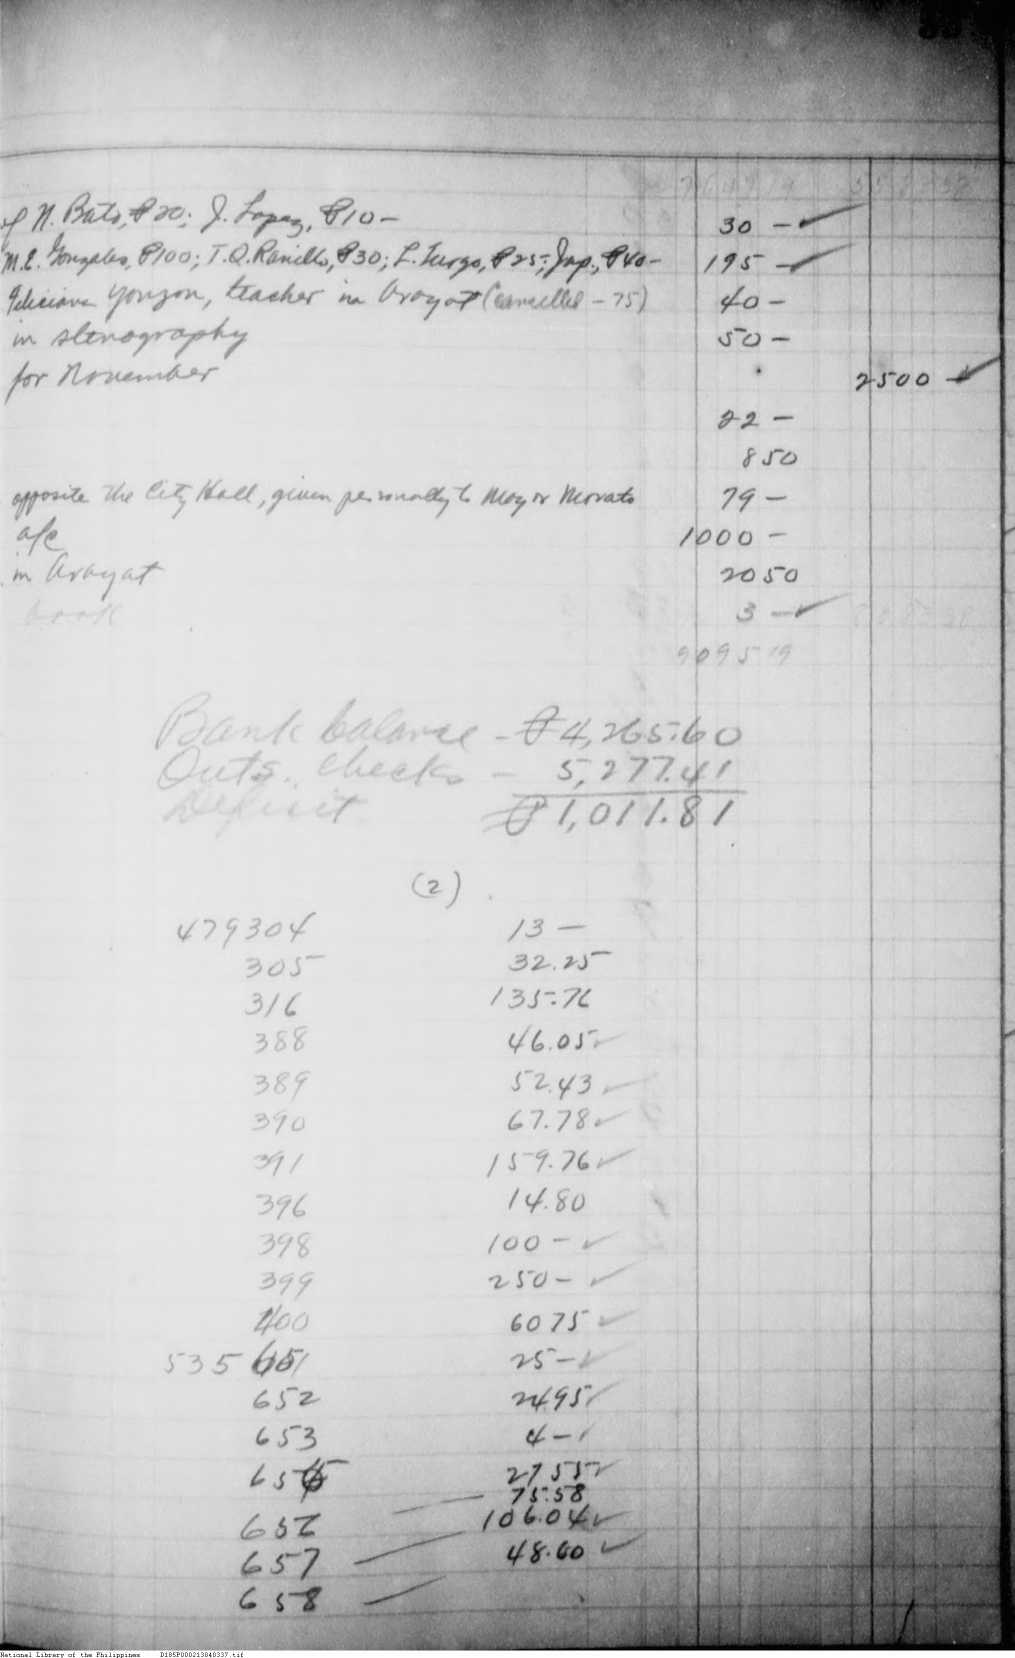 of N. Bato, ₱20; J. Lopez, ₱10— 30 —
M.E. Gonzales, ₱100; T.Q. Ranillo, ₱30; L. Turgo, ₱25; Jap., ₱40— 195 —
Feliciana Yonzon, teacher in Arayat (Cancelled — 75) 40 —
in stenography 50 —
for November 2500 —
22 —
8 50
opposite the City Hall, given personally to Mayor Morato 79 —
a/c 1000 —
in Arayat 20 50
book 3 —
9095 79
Bank balance — ₱4,265.60
Outs. checks — 5,277.41
Deficit ₱1,011.81
(2)
479304 13 —
305 32.25
316 135.76
388 46.05
389 52.43
390 67.78
391 159.76
396 14.80
398 100 —
399 250 —
400 60 75
535 651 25 —
652 24 95
653 4 —
655 27 55
75.58
656 106.04
657 48.60
658
National Library of the Philippines D185P000213040337.tif